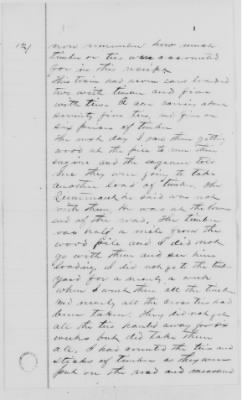 now remember how much
timber or ties were accounted
for in this receipt
This train had seven cars loaded
two with timber and five
with ties. A car carries about
seventy five ties, and five or
six pieces of timber
The next day I saw them getting
wood at the pile to run their
engine and the engineer told
me they were going to take
another load of timber. The
Lieutenant he said was not
with them he was at the
end of the road. The timber
was half a mile from the
wood pile and I did not
go with them and see him
loading. I did not go to the
yard for nearly a week
when I went there all the timber
and nearly all the cross ties had
been taken. They did not get
all the ties hauled away for six
weeks but did take them
all. I had counted the ties and
sticks of timber as they were
put on the road and measured